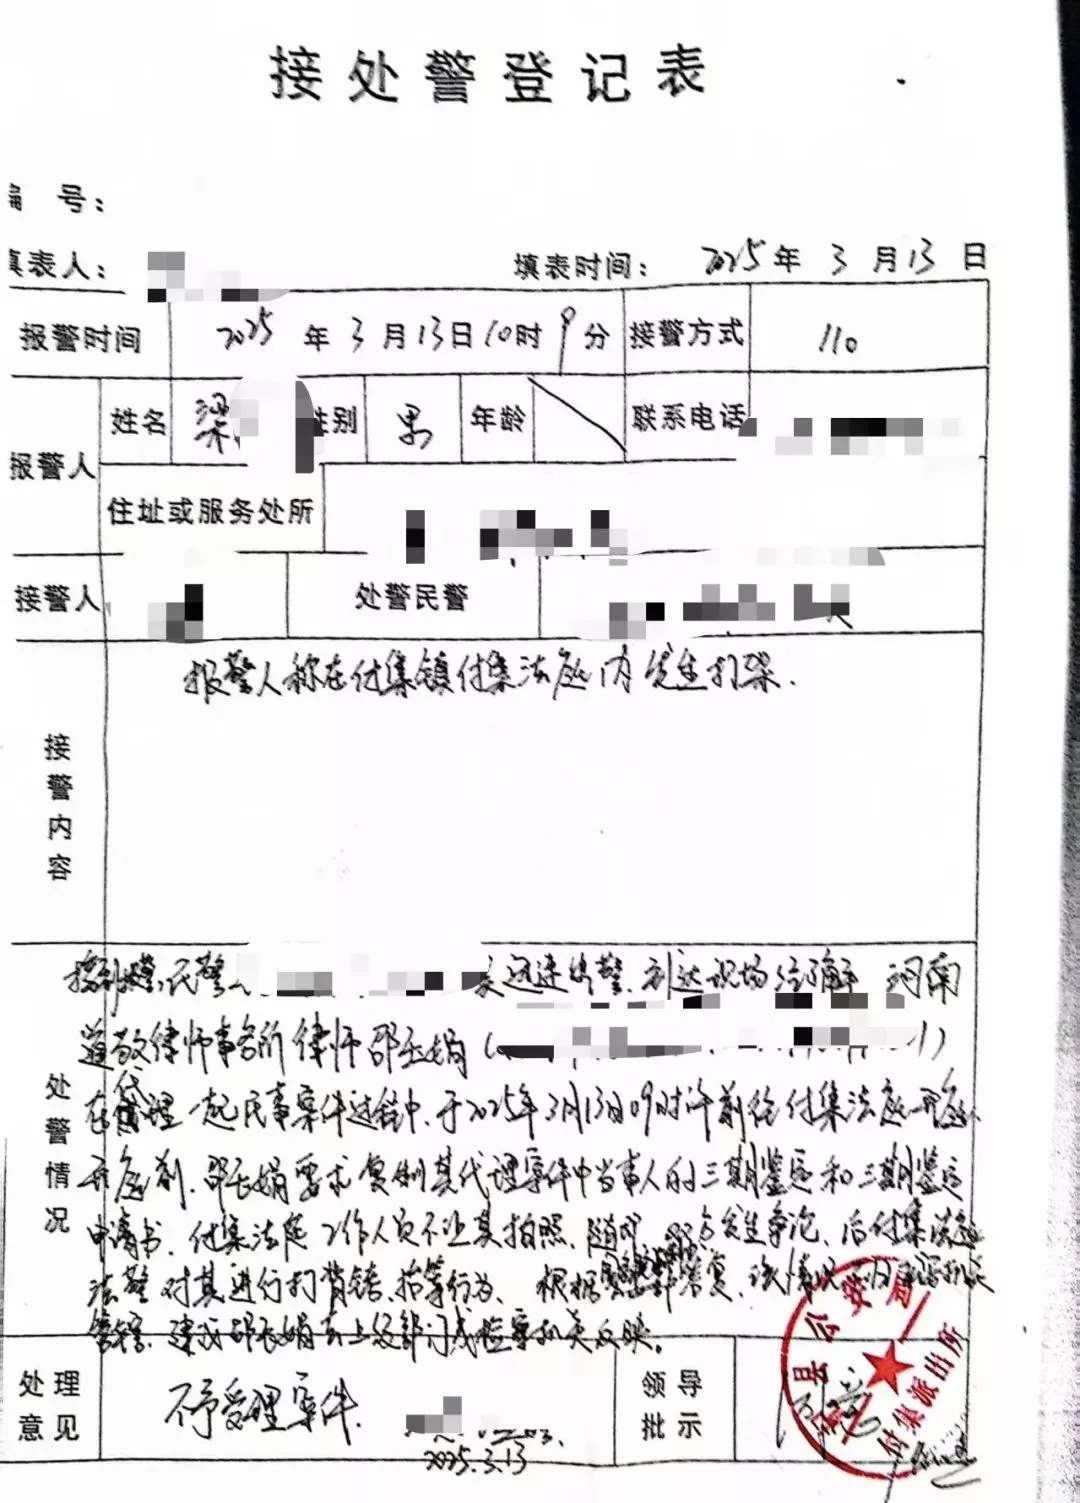 接处警登记表
编 号：
填表人：
填表时间： 2025年 3 月 13 日
报警时间 2025 年 3 月 13 日 10 时 9 分 接警方式 110
报警人 姓名 梁 性别 男 年龄 联系电话
住址或服务处所
接警人 处警民警
接警内容
报警人称在付集镇付集法庭内发生打架.
处警情况
民警 迅速出警.到达现场经了解 河南
道敬律师事务所律师邵
在代理一起民事案件过程中.于2025年3月13日09时许前往付集法庭开庭、
开庭前.邵 娟要求复制其代理案件中当事人的三期鉴定和三期鉴定
申请书.付集法庭工作人员不让其拍照.随即 双方发生争论、后付集法庭
法警对其进行打背铐、抬等行为、根据 答复.该情况
管辖.建议邵 娟去上级部门或检察机关反映。
处理意见 不予受理案件.
2025.3.13
领导批示
县公安局
付集派出所